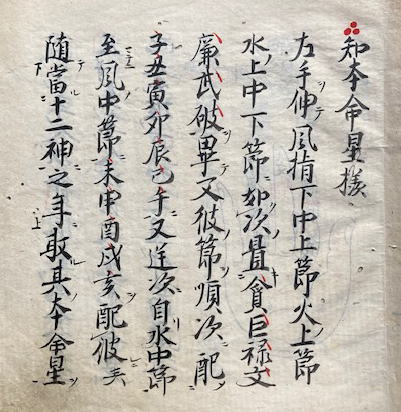 知本命星様
左手伸風指下中上節火上節
水上中下節如次畳貪巨禄文
廉武破畢又彼節順次配
子丑寅卯辰巳午又逆次自水中節
至風中節未申酉戌亥配彼
随當十二神之年取其本命星